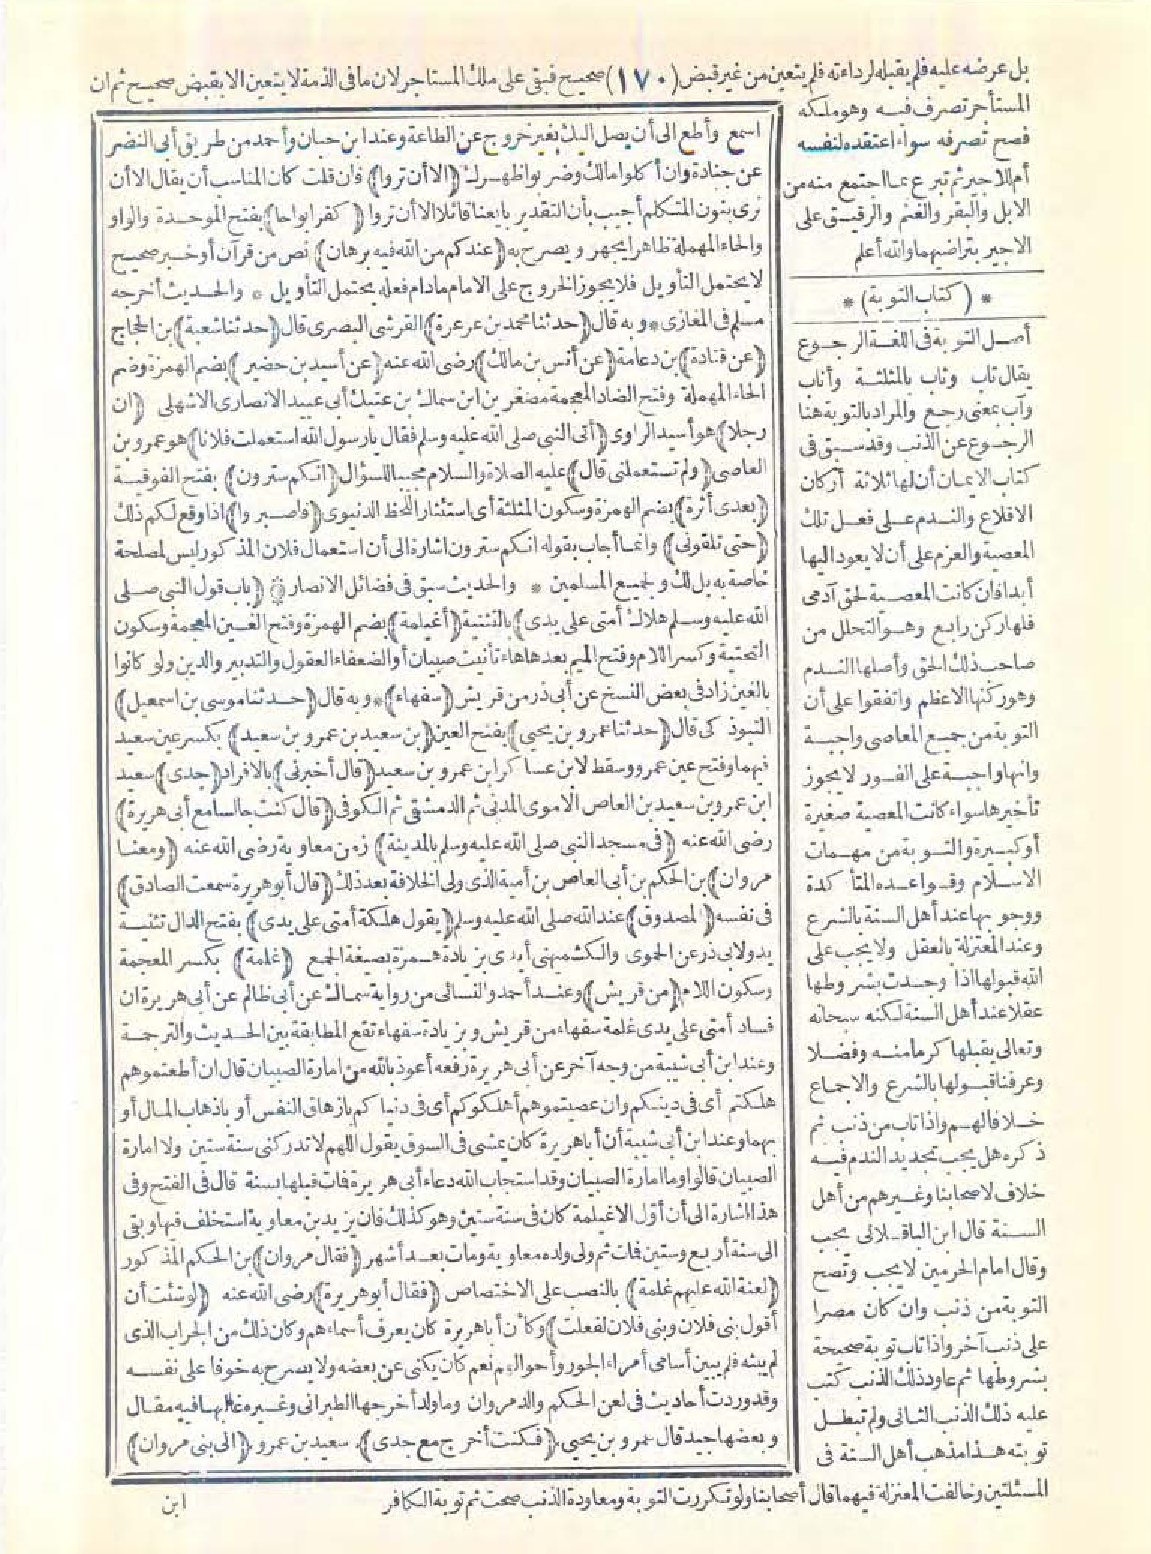 بل عرضه عليه فلم يقبله لرداءته فلم يتعين من غير قبض (١٧٠) صحيح فبقى على ملك المستاجر لان ما فى الذمة لا يتعين الا بقبض صحيح ثم ان
المستأجر تصرف فيه وهو ملكه
فصح تصرفه سواء اعتقده لنفسه
أم للاجير ثم تبرع بما اجتمع منه من
الابل والبقر والغنم والرقيق على
الاجير بتراضيهما والله أعلم
* (كتاب التوبة) *
أصل التوبة فى اللغة الرجوع
يقال تاب وثاب بالمثلثة وأناب
وآب بمعنى رجع والمراد بالتوبة هنا
الرجوع عن الذنب وقد سبق فى
كتاب الايمان أن لها ثلاثة أركان
الاقلاع والندم على فعل تلك
المعصية والعزم على أن لا يعود اليها
أبدا فان كانت المعصية لحق آدمى
فلها ركن رابع وهو التحلل من
صاحب ذلك الحق وأصلها الندم
وهو ركنها الاعظم واتفقوا على أن
التوبة من جميع المعاصى واجبة
وانها واجبة على الفور لا يجوز
تأخيرها سواء كانت المعصية صغيرة
أو كبيرة والتوبة من مهمات
الاسلام وقواعده المتأكدة
ووجوبها عند أهل السنة بالشرع
وعند المعتزلة بالعقل ولا يجب على
الله قبولها اذا وجدت بشروطها
عقلا عند أهل السنة لكنه سبحانه
وتعالى يقبلها كرما منه وفضلا
وعرفنا قبولها بالشرع والاجماع
خلافا لهم واذا تاب من ذنب ثم
ذكره هل يجب تجديد الندم فيه
خلاف لاصحابنا وغيرهم من أهل
السنة قال ابن الباقلانى يجب
وقال امام الحرمين لا يجب وتصح
التوبة من ذنب وان كان مصرا
على ذنب آخر واذا تاب توبة صحيحة
بشروطها ثم عاود ذلك الذنب كتب
عليه ذلك الذنب الثانى ولم تبطل
توبته هذا مذهب أهل السنة فى
المسئلتين وخالفت المعتزلة فيهما قال أصحابنا ولو تكررت التوبة ومعاودة الذنب صحت ثم توبة الكافر
اسمع وأطع الى أن يصل اليك بغير خروج عن الطاعة وعند ابن حبان وأحمد من طريق أبى النضر
عن جنادة وان أكلوا مالك وضربوا ظهرك (الا أن تروا) فان قلت كان المناسب أن يقال الا أن
نرى بنون المتكلم أجيب بأن التقدير بايعنا قائلا الا أن تروا (كفرا بواحا) بفتح الموحدة والواو
والحاء المهملة ظاهرا يجهر ويصرح به (عندكم من الله فيه برهان) نص من قرآن أو خبر صحيح
لا يحتمل التأويل فلا يجوز الخروج على الامام مادام فعله يحتمل التأويل * والحديث أخرجه
مسلم فى المغازى * وبه قال (حدثنا محمد بن عرعرة) القرشى البصرى قال (حدثنا شعبة) بن الحجاج
(عن قتادة) بن دعامة (عن أنس بن مالك) رضى الله عنه (عن أسيد بن حضير) بضم الهمزة وضم
الحاء المهملة وفتح الضاد المعجمة مصغرين ابن سماك بن عتيك أبى عبيد الانصارى الاشهلى (ان
رجلا) هو أسيد الراوى (أتى النبى صلى الله عليه وسلم فقال يا رسول الله استعملت فلانا) هو عمرو بن
العاصى (ولم تستعملنى قال) عليه الصلاة والسلام مجيبا للسؤال (انكم سترون) بفتح الفوقية
(بعدى أثرة) بضم الهمزة وسكون المثلثة أى استئثار الحظ الدنيوى (فاصبروا) اذا وقع لكم ذلك
(حتى تلقونى) وانما أجاب بقوله انكم سترون اشارة الى أن استعمال فلان المذكور ليس لمصلحة
خاصة به بل لك ولجميع المسلمين * والحديث سبق فى فضائل الانصار * (باب قول النبى صلى
الله عليه وسلم هلاك أمتى على يدى) بالتثنية (أغيلمة) بضم الهمزة وفتح الغين المعجمة وسكون
التحتية وكسر اللام وفتح الميم بعدها هاء تأنيث صبيان أو الضعفاء العقول والتدبير والدين ولو كانوا
بالغين زاد فى بعض النسخ عن أبى ذر من قريش (سفهاء) * وبه قال (حدثنا موسى بن اسمعيل)
التبوذكى قال (حدثنا عمرو بن يحيى) بفتح العين (بن سعيد بن عمرو بن سعيد) بكسر عين سعيد
فيهما وفتح عين عمرو وسقط لابن عساكر ابن عمرو بن سعيد (قال أخبرنى) بالافراد (جدى) سعيد
ابن عمرو بن سعيد بن العاص الاموى المدنى ثم الدمشقى ثم الكوفى (قال كنت جالسا مع أبى هريرة)
رضى الله عنه (فى مسجد النبى صلى الله عليه وسلم بالمدينة) زمن معاوية رضى الله عنه (ومعنا
مروان) بن الحكم بن أبى العاص بن أمية الذى ولى الخلافة بعد ذلك (قال أبو هريرة سمعت الصادق)
فى نفسه (المصدوق) عند الله صلى الله عليه وسلم (يقول هلكة أمتى على يدى) بفتح الدال تثنية
يد ولابى ذر عن الحموى والكشميهنى أيدى بزيادة همزة بصيغة الجمع (غلمة) بكسر المعجمة
وسكون اللام (من قريش) وعند أحمد والنسائى من رواية سماك عن أبى ظالم عن أبى هريرة ان
فساد أمتى على يدى غلمة سفهاء من قريش وبزيادة سفهاء تقع المطابقة بين الحديث والترجمة
وعند ابن أبى شيبة من وجه آخر عن أبى هريرة رفعه أعوذ بالله من امارة الصبيان قال ان أطعتموهم
هلكتم أى فى دينكم وان عصيتموهم أهلكوكم أى فى دنياكم بازهاق النفس أو باذهاب المال أو
بهما وعند ابن أبى شيبة أن أبا هريرة كان يمشى فى السوق يقول اللهم لا تدركنى سنة ستين ولا امارة
الصبيان قالوا وما امارة الصبيان وقد استجاب الله دعاء أبى هريرة فمات قبلها بسنة قال فى الفتح وفى
هذا اشارة الى أن أول الاغيلمة كان فى سنة ستين وهو كذلك فان يزيد بن معاوية استخلف فيها وبقى
الى سنة أربع وستين فمات ثم ولى ولده معاوية ومات بعد أشهر (فقال مروان) بن الحكم المذكور
(لعنة الله عليهم غلمة) بالنصب على الاختصاص (فقال أبو هريرة) رضى الله عنه (لو شئت أن
أقول بنى فلان وبنى فلان لفعلت) وكأن أبا هريرة كان يعرف أسماءهم وكان ذلك من الجراب الذى
لم يبثه فلم يبين أسامى أمراء الجور وأحوالهم نعم كان يكنى عن بعضه ولا يصرح به خوفا على نفسه
وقد وردت أحاديث فى لعن الحكم والد مروان وما ولد أخرجها الطبرانى وغيره غالبها فيه مقال
وبعضها جيد قال عمرو بن يحيى (فكنت أخرج مع جدى) سعيد بن عمرو (الى بنى مروان)
ابن